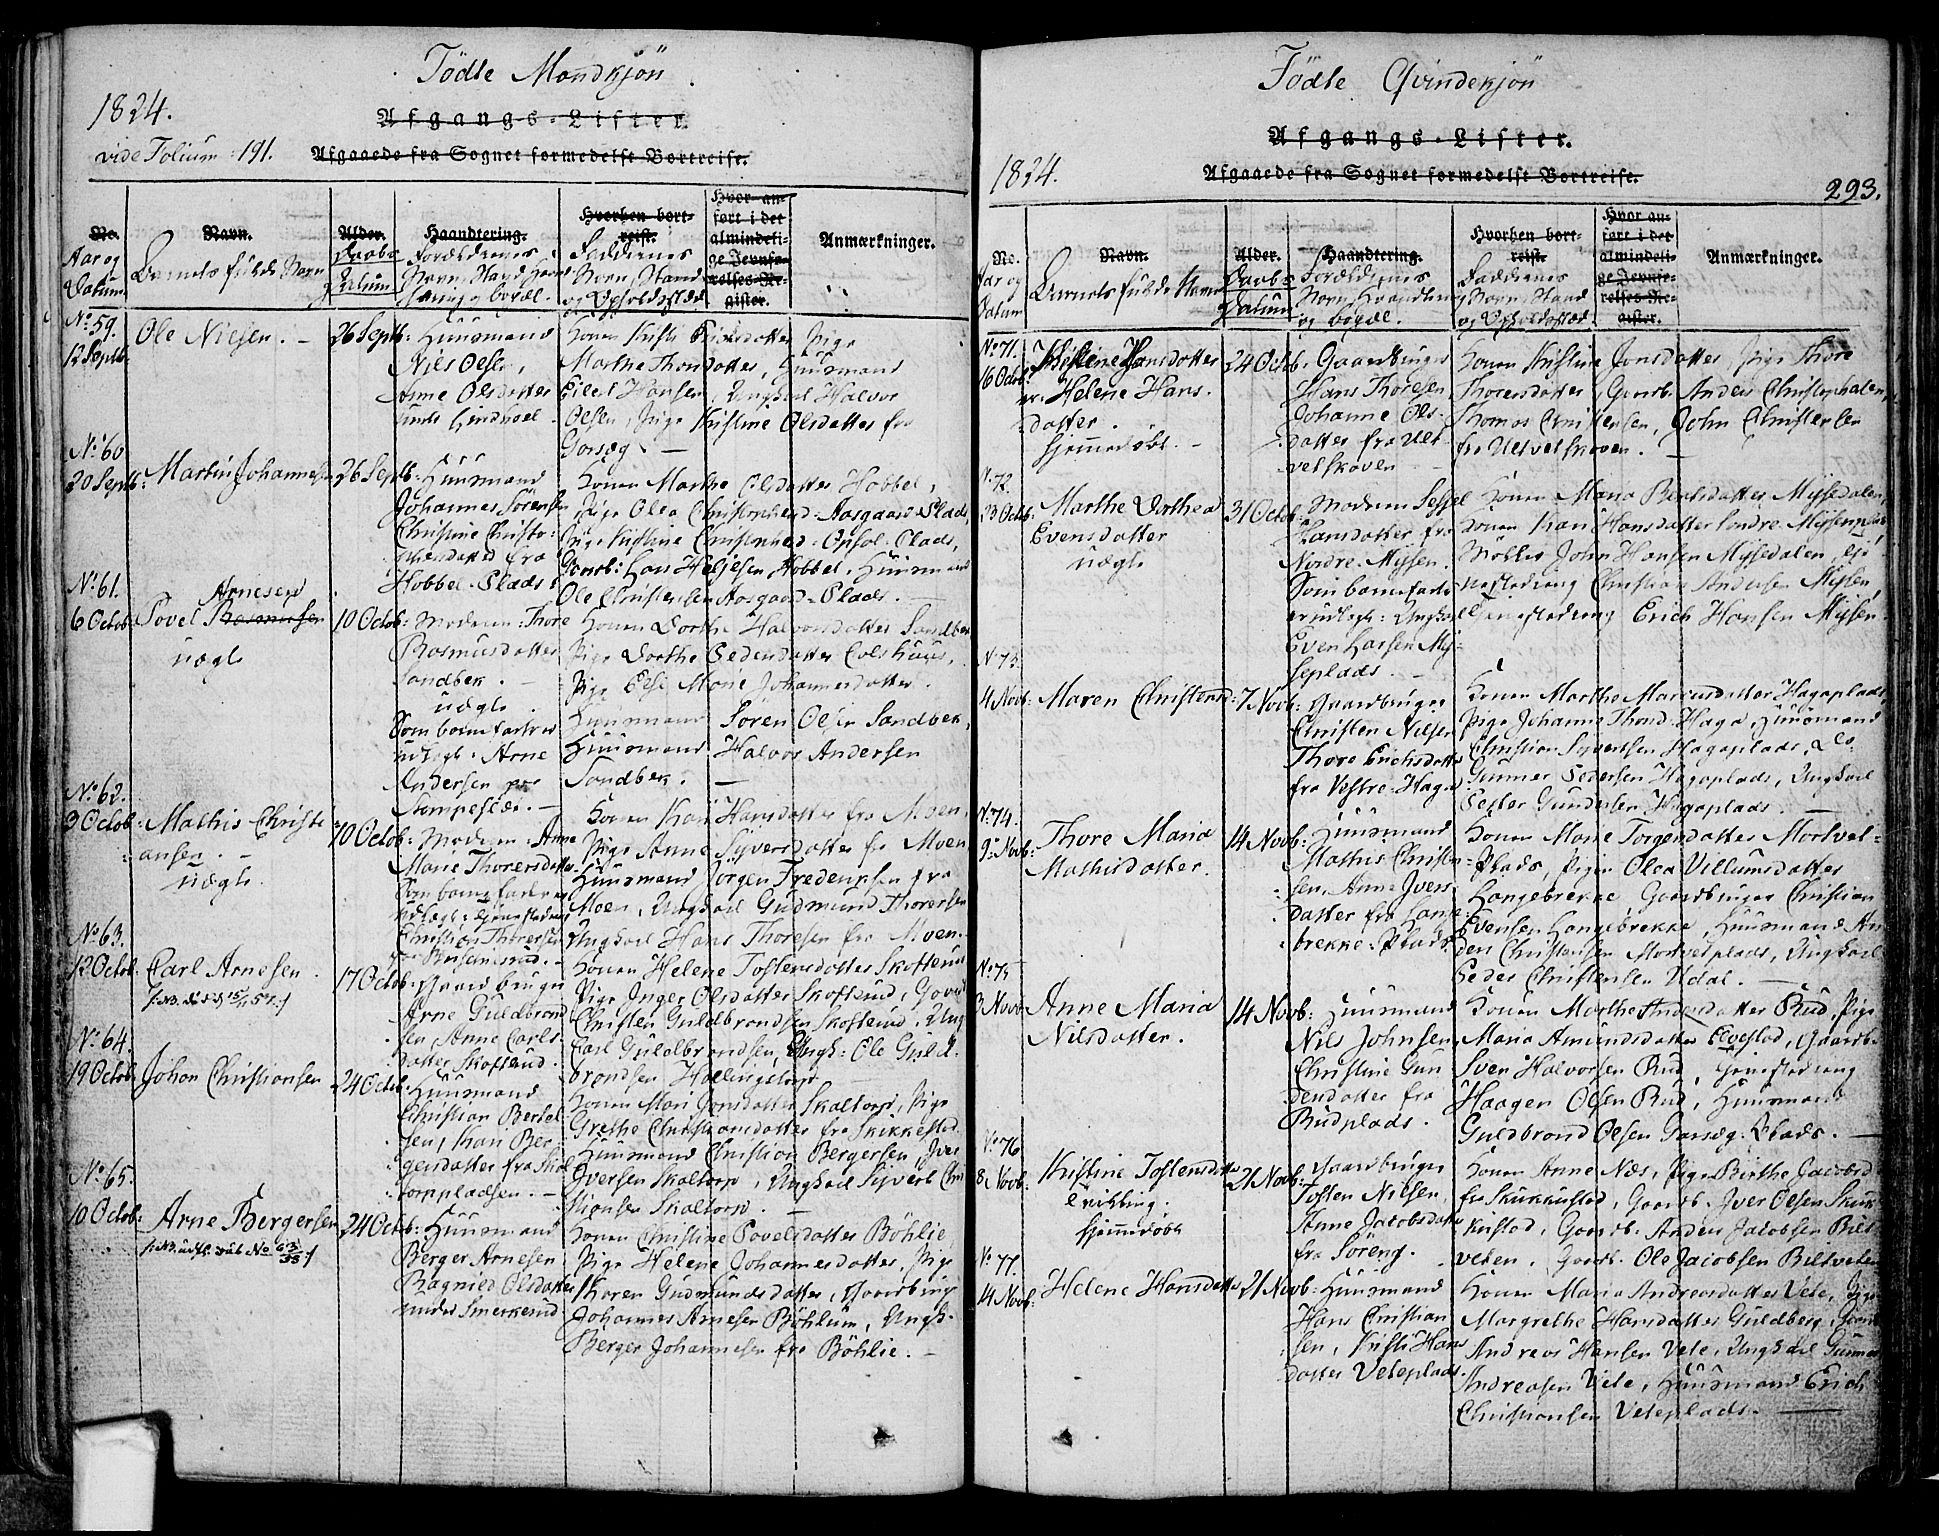 Födte Mandkjön
1824.
Afgangs-Lister.
vide Folium 191.
Afgaaede fra Sognet formedelst Bortreise.
No. Navn. Alder. Haandtering. Hvorhen bortreist. Hvor anført i det almindelige Jevnførelses-Register. Anmærkninger.
Aar og Datum
Barnets fulde Navn
Daabs Datum
Forældrenes Navn, Stand
og boepæl.
Faddernes Navn, Stand og Opholdsstæd
No. 59.
12 Septb:
Ole Nielsen.
26 Septb:
Huusmand
Nils Olsen,
Anne Olsdatter
Marthe Thorsdatter, Huusmand
Eilert Hansen, Ungkarl Halvor
Olsen, Pige Kristine Olsdatter fra
No. 60
20 Septb:
Martin Johannesen
26 Septb:
Huusmand
Johannes Sörensen
Christine Christophersdatter fra
Hobbel-Plads
Konen Marthe Olsdatter Hobbel,
Pige Olea Christophersd: Aasgaard-Plads,
Pige Kristine Christophersd: Opsal-Plads,
Gaardb: Lars Helgesen Hobbel, Huusmand
Ole Christensen Aasgaard-Plads.
No. 61.
6 Octob:
Arnesen
Povel Rasmusen
uægte
10 Octob:
Moderen: Thore
Rasmusdatter
Sandbek.
uægte
Som barnefader
udlagt: Arne
Andersen
Konen Dorthe Halvorsdatter Sandbek
Pige Dorthe Pedersdatter
Pige Else Marie Johannesdatter.
Huusmand Sören Olsen Sandbek,
Huusmand Halvor Andersen
Sandbek.
No. 62.
3 Octob:
Mathis Christiansen.
uægte.
10 Octob:
Moderen: Anne
Marie Thorersdatter
Som barnefader
udlagt:
Christian Thorersen
Konen Kari Hansdatter fra Moen,
Pige Anne Syversdatter fra Moen,
Huusmand Jörgen Fredericksen fra
Moen, Ungkarl Gudmund Thorersen
Ungkarl Hans Thoresen fra Moen.
No. 63.
12 Octob:
Carl Arnesen.
17 Octob:
Gaardbruger
Arne Guldbrandsen, Anne Carlsdatter Skofterud.
Konen Helene Tostensdatter Skofterud
Pige Inger Olsdatter Skofterud, Gaardb
Christen Guldbrandsen Skofterud, Ungk
Carl Guldbrandsen, Ungk: Ole Guldbrandsen
No. 64.
19 Octob:
Johan Christiansen
24 Octob:
Huusmand
Christian Bertelsen, Kari Bergersdatter fra Skaltorppladsen.
Konen Mari Jonsdatter Skaltorp, Pige
Grethe Christiansdatter fra Skikkestad
Huusmand Christian Bergersen, Iver
Iversen Skaltorp, Ungkarl Syvert Christiansen Skaltorp.
No. 65.
10 Octob:
Arne Bergersen
24 Octb:
Huusmand
Berger Arnesen
Ragnild Olsdatter
under Smerkerud
Konen Christine Povelsdatter Böhlie,
Pige Helene Johannesdatter, Pige
Karen Gudmundsdatter, Gaardbruger
Johannes Arnesen Böhlum, Ungk.
Berger Johannesen fra Böhlie.
Födte Qvindekjön
Afgangs-Lister.
1824.
Afgaaede fra Sognet formedelst Bortreise.
293.
No. Navn. Alder. Haandtering. Hvorhen bortreist. Hvor anført i det almindelige Jevnførelses-Register. Anmærkninger.
Aar og Datum
Barnets fulde Navn
Daabs Datum
Forældrenes
og boepæl.
Faddernes
Navn, Stand
og Opholdsstæd
No. 71.
16 Octob:
Kristine Hansdatter
er Helene Hansdatter.
hjemmedöbt.
24 Octb.
Gaardbruger
Hans Thoresen
Johanne Olsdatter fra Ultvetskoven
Konen Kristine Jonsdatter, Pige Thore
Thorersdatter, Gaardb. Anders Christophersen,
Thomas Christensen, John Christensen
fra Ultvetskoven.
No. 72.
23 Octb:
Marthe Dorthea
Evensdatter
uægte
31 Octob:
Moderen Sessel
Hansdatter fra
Nordre-Mysen.
Som barnefader
er udlagt: Ungkarl
Even Larsen Myseplads.
Konen Maria Berntsdatter Mysedalen,
Konen Kari Hansdatter Söndre Mysenplads
Möller John Hansen Mysedalen,
Christian Andersen Mysen,
Erich Hansen Mysen.
No. 73.
4 Novb:
Maren Christensd:
7 Novb:
Gaardbruger
Christen Nilsen
Thore Erichsdatter
fra Vestre-Haga
Konen Marthe Hagaplads,
Pige Johanne Thorsd: Haga, Huusmand
Christian Syvertsen Hagaplads,
Gunner Pedersen Hagaplads, Ungkarl
Peder Gundersen Hagaplads.
No. 74.
9 Novb:
Thore Maria
Mathisdatter.
14 Novb:
Huusmand
Mathis Christensen, Anne Iversdatter fra Langebrekke-Plads.
Konen Marie Torgersdatter Mortvet-Plads, Pigen Olea Villumsdatter
Langebrekke, Gaardbruger Christian
Evensen Langebrekke, Huusmand Anders Christiansen Mortvetplads, Ungkarl
Peder Christensen Udal.
No. 75
3 Novb:
Anne Maria
Nilsdatter.
14 Novb:
Huusmand
Nils Johnsen,
Christine Gundersdatter fra
Rudplads.
Konen Marthe Andersdatter Rud, Pige
Maria Amundsdatter Elvestad, Gaardb.
Sven Halvorsen Rud,
Haagen Olsen Rud, Huusmand
Guldbrand Olsen Plads.
No. 76
8 Novb:
Kristine Tostensdatter
tvilling
hjemmedöbt
21 Novb:
Gaardbruger
Tosten Nilsen,
Anne Jacobsdatter
fra Söreng.
Konen Anne Næs, Pige Birthe Jacobsd
fra Skukkustad, Gaardb. Iver Olsen Skukkustad, Gaardb. Anders Jacobsen Biltveten, Gaardb. Ole Jacobsen Biltveten
No. 77.
14 Novb:
Helene Hansdatter
21 Novb:
Huusmand
Hans Christiansen, Kristi Hansdatter Veteplads.
Konen Maria Andreasdatter Vete, Pige
Margrethe Hansdatter Guldberg, Gaardb
Andreas Hansen Vete, Ungkarl Gunner
Andreasen Vete, Huusmand Erich
Christiansen Veteplads.